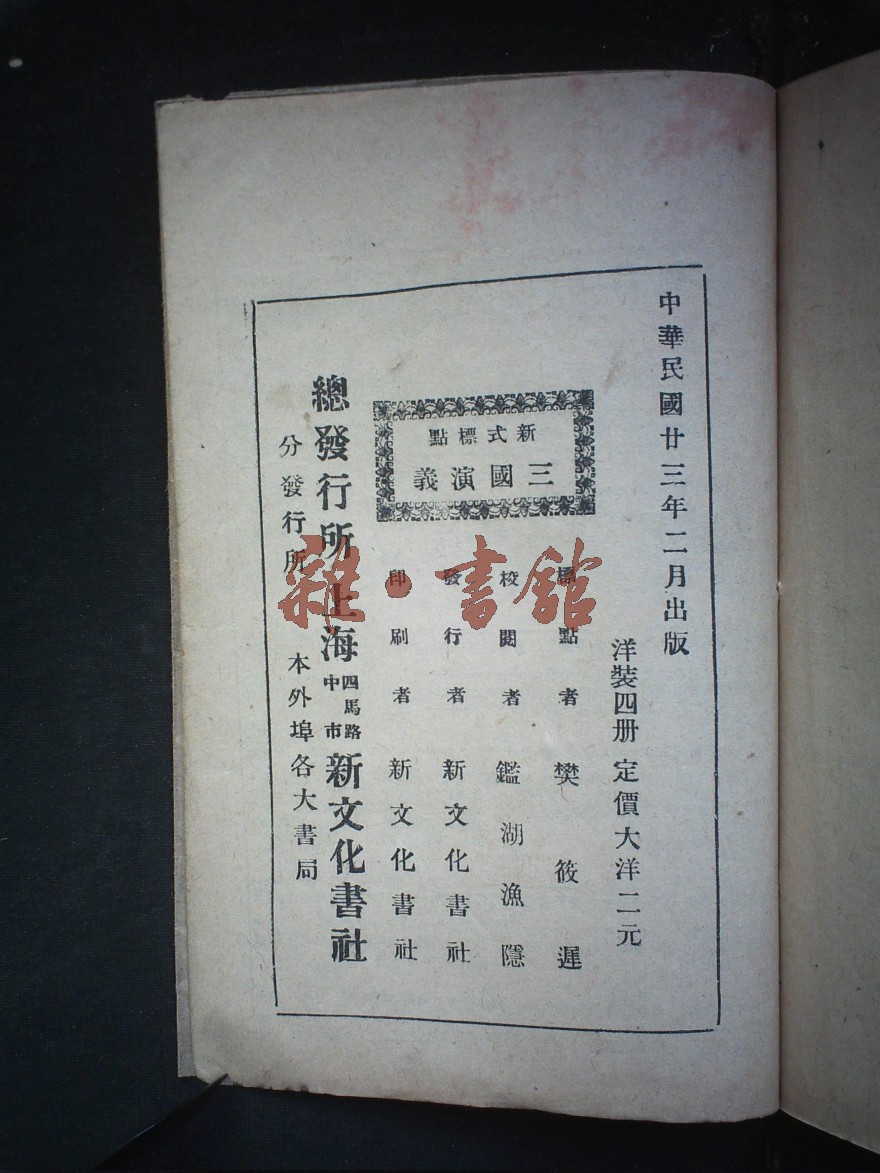 中華民國廿三年二月出版
洋裝四册 定價大洋二元
新式標點
三國演義
標點者 樊筱遲
校閱者 鑑湖漁隱
發行者 新文化書社
印刷者 新文化書社
總發行所 上海四馬路中市 新文化書社
分發行所 本外埠各大書局
雜·書館